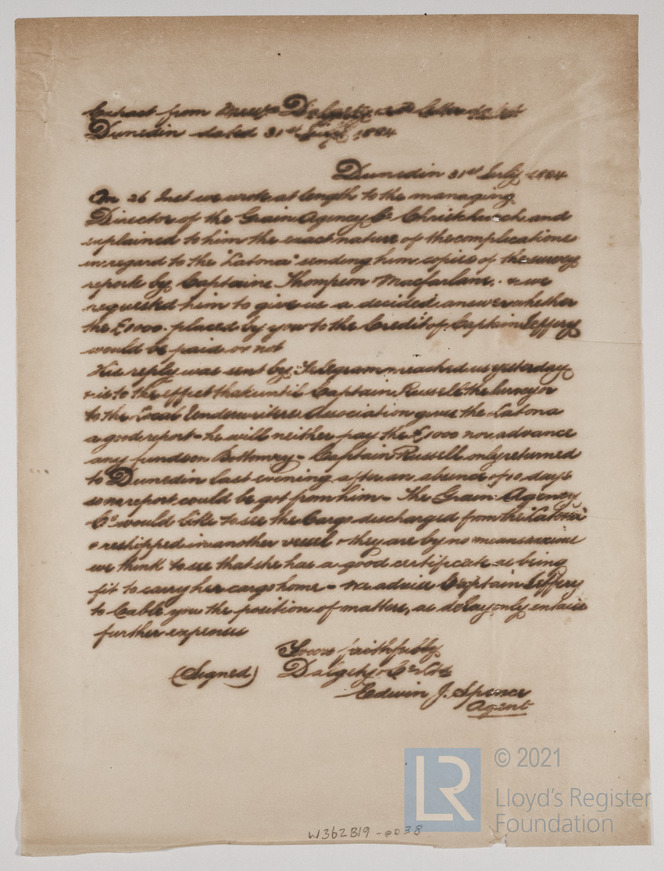 Extract from Messrs Dalgety and letter dated
Dunedin dated 31st July 1884
Dunedin 31st July 1884
On 26 Inst we wrote at length to the managing
Director of the Grain Agency Co Christchurch and
explained to him the exact nature of the complications
in regard to the "Latona" sending him copies of the survey
reports by Captains Thompson Macfarlane. & we
requested him to give us a decided answer whether
the £1000. placed by you to the Credit of Captain Jeffery
would be paid or not
His reply was sent by Telegram reached us yesterday
& is to the effect that until Captain Russell the Surveyor
to the Local Underwriters Association gives the Latona
a good report - he will neither pay the £1000 nor advance
any funds on Bottomry - Captain Russell only returned
to Dunedin last evening after an absence of 10 days
so no report could be got from him - The Grain Agency
Co would like to see the Cargo discharged from the "Latona"
& reshipped in another vessel & they are by no means anxious
we think to see that she has a good certificate as being
fit to carry her cargo home - We advise Captain Jeffery
to Cable you the position of matters, as delay only entails
further expenses
Yours faithfully
(Signed) Dalgety & Co Ltd
Edwin J. Spence
Agent
W362B19-0038
LR
© 2021
Lloyd's Register
Foundation